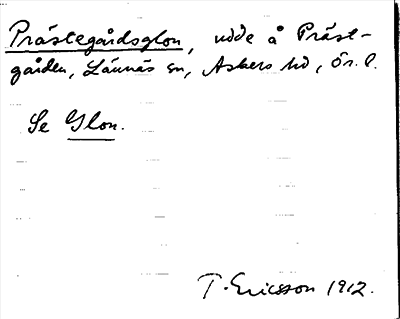 Prästegårdsglon, udde å Präst-
gården, Lännäs sn, Askers hd, Ör. l.
Se Glon.
T. Ericsson 1912.